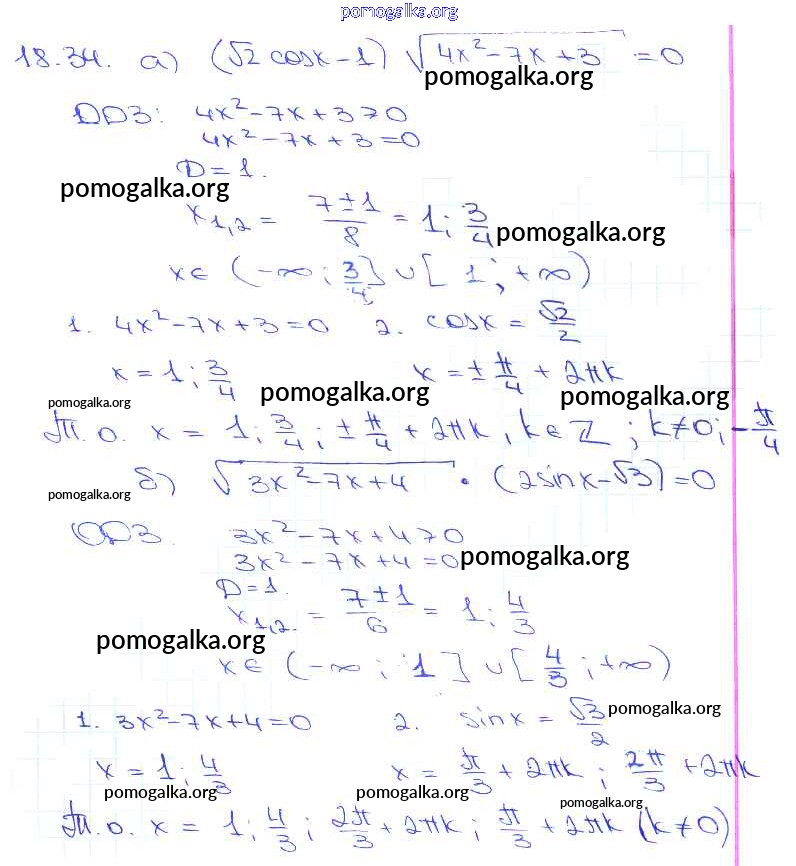 pomogalka.org
18.34. а) (√2 cosx - 1) √4x² - 7x + 3 = 0
pomogalka.org
ОДЗ: 4x² - 7x + 3 ≥ 0
4x² - 7x + 3 = 0
D = 1.
pomogalka.org
x₁,₂ = (7 ± 1)/8 = 1; 3/4
pomogalka.org
x ∈ (-∞; 3/4] ∪ [1; +∞)
1. 4x² - 7x + 3 = 0 2. cosx = √2/2
x = 1; 3/4 x = ± π/4 + 2πk
pomogalka.org pomogalka.org pomogalka.org
Т.о. x = 1; 3/4; ± π/4 + 2πk, k ∈ Z; k ≠ 0; - π/4
б) √3x² - 7x + 4 · (2sinx - √3) = 0
pomogalka.org
ОДЗ. 3x² - 7x + 4 ≥ 0
3x² - 7x + 4 = 0 pomogalka.org
D = 1.
x₁,₂. = (7 ± 1)/6 = 1; 4/3
pomogalka.org
x ∈ (-∞; 1] ∪ [4/3; +∞)
1. 3x² - 7x + 4 = 0 2. sinx = √3/2
pomogalka.org
x = 1; 4/3 x = π/3 + 2πk; 2π/3 + 2πk
pomogalka.org pomogalka.org pomogalka.org
Т.о. x = 1; 4/3; 2π/3 + 2πk; π/3 + 2πk (k ≠ 0)